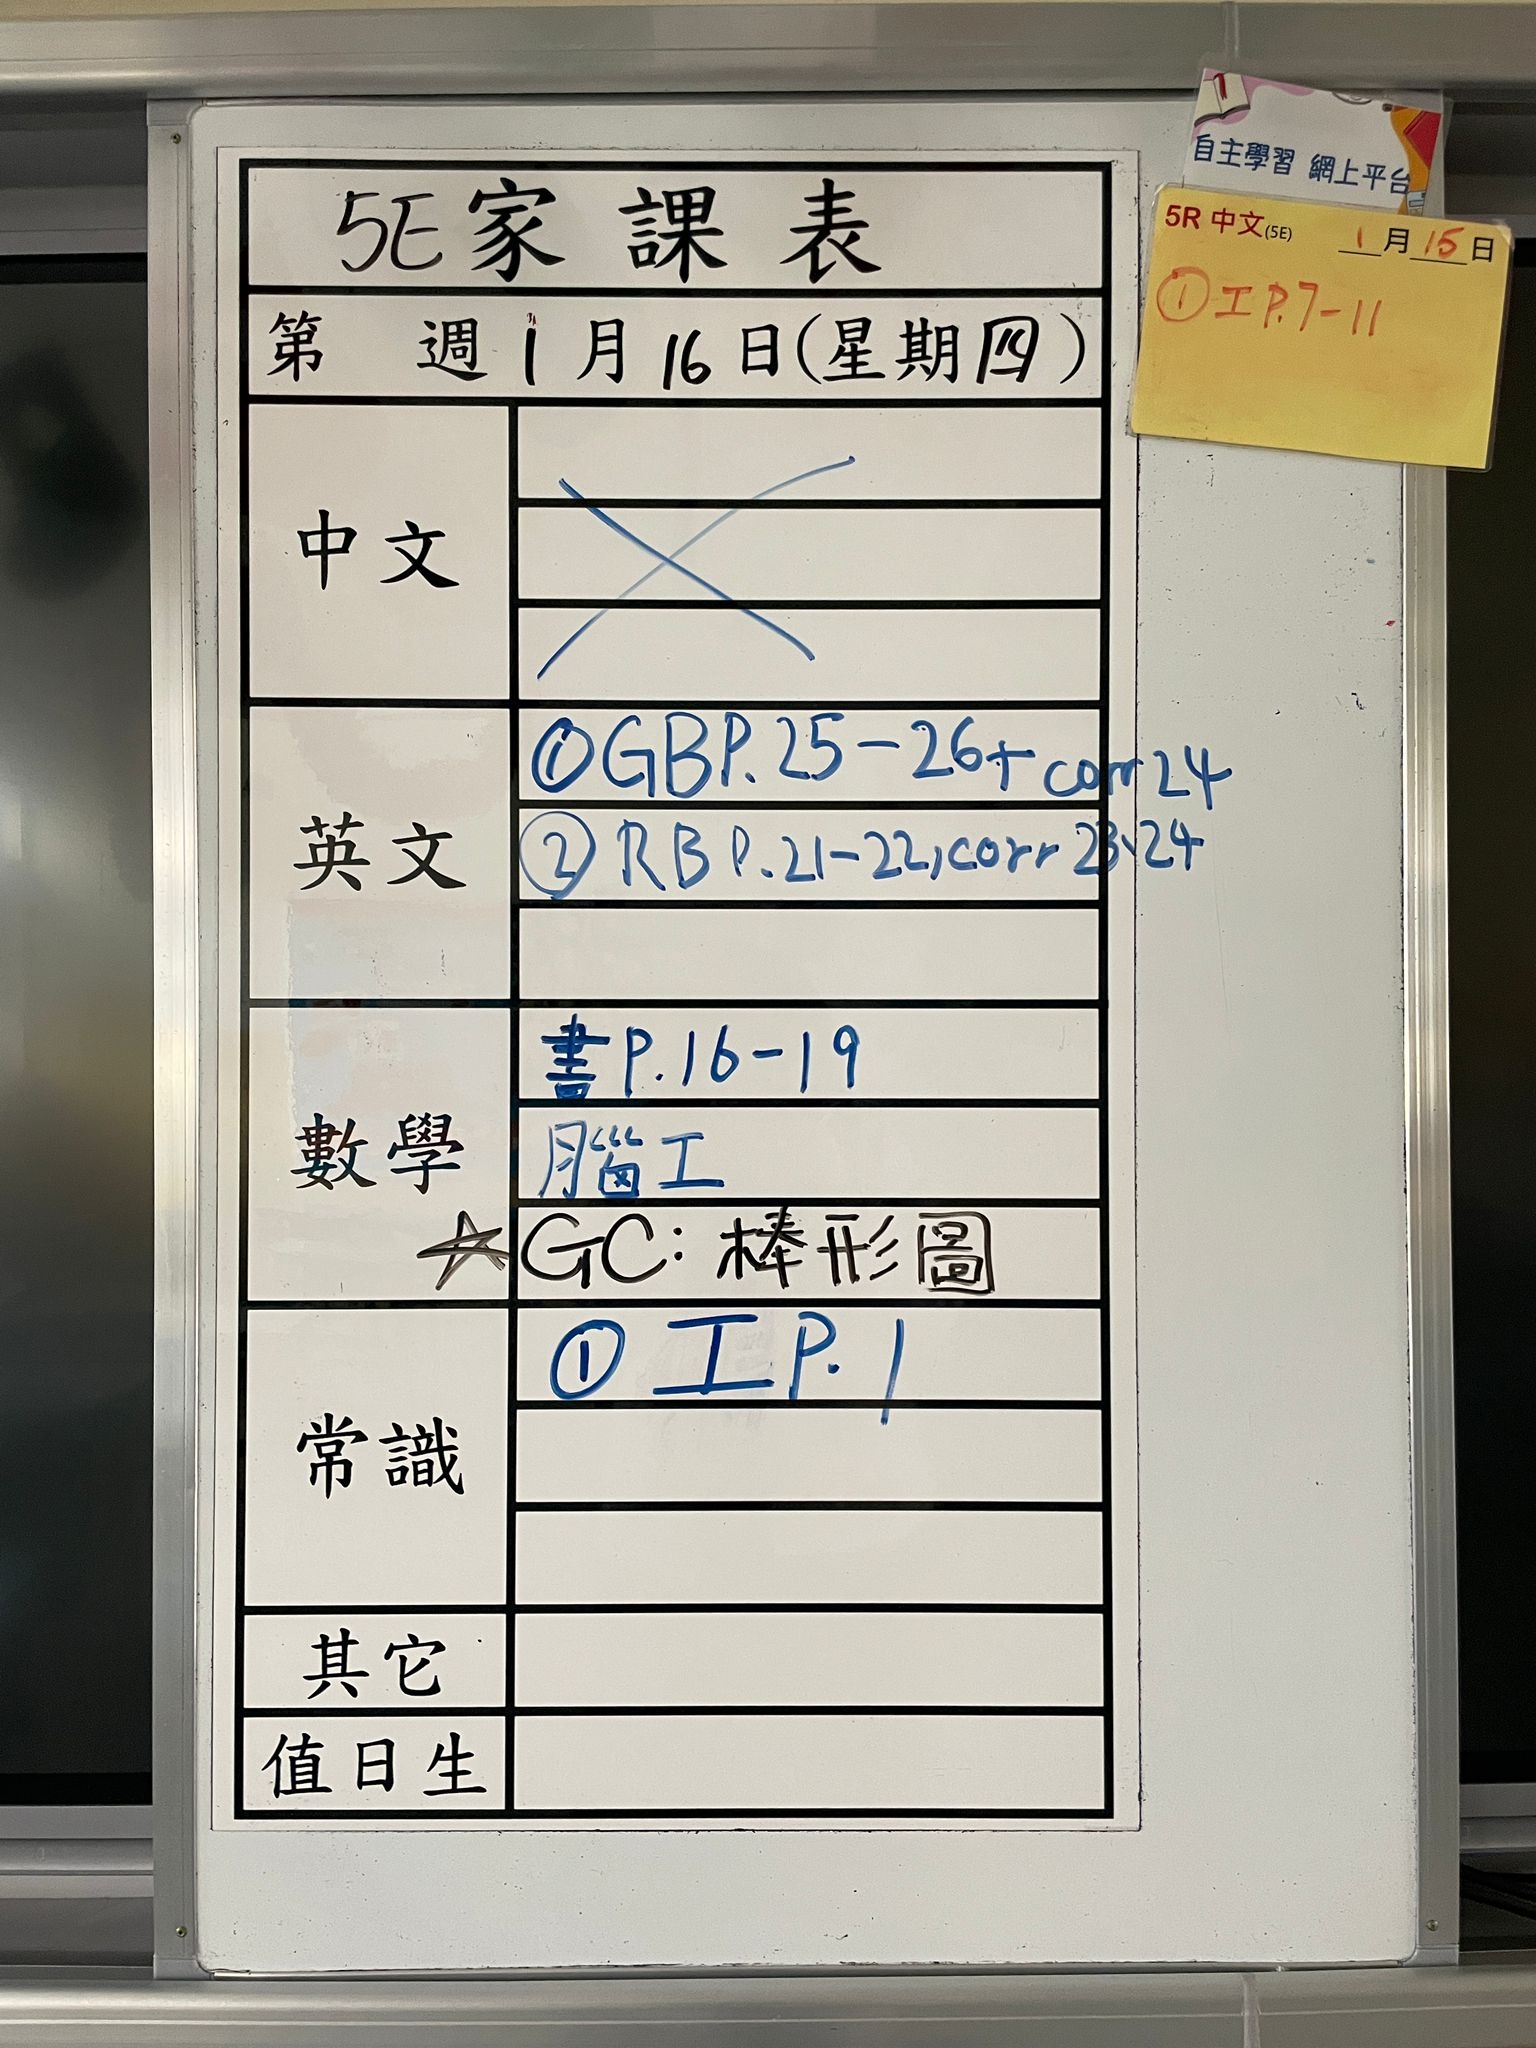 自主學習 網上平台
5R 中文(5E) 1月15日
①工P.7-11
5E家課表
第 週1月16日(星期四)
中文
英文
①GBP.25-26+corr24
②RBP.21-22,corr23、24
數學
書P.16-19
腦工
☆GC:棒形圖
常識
①工P.1
其它
值日生